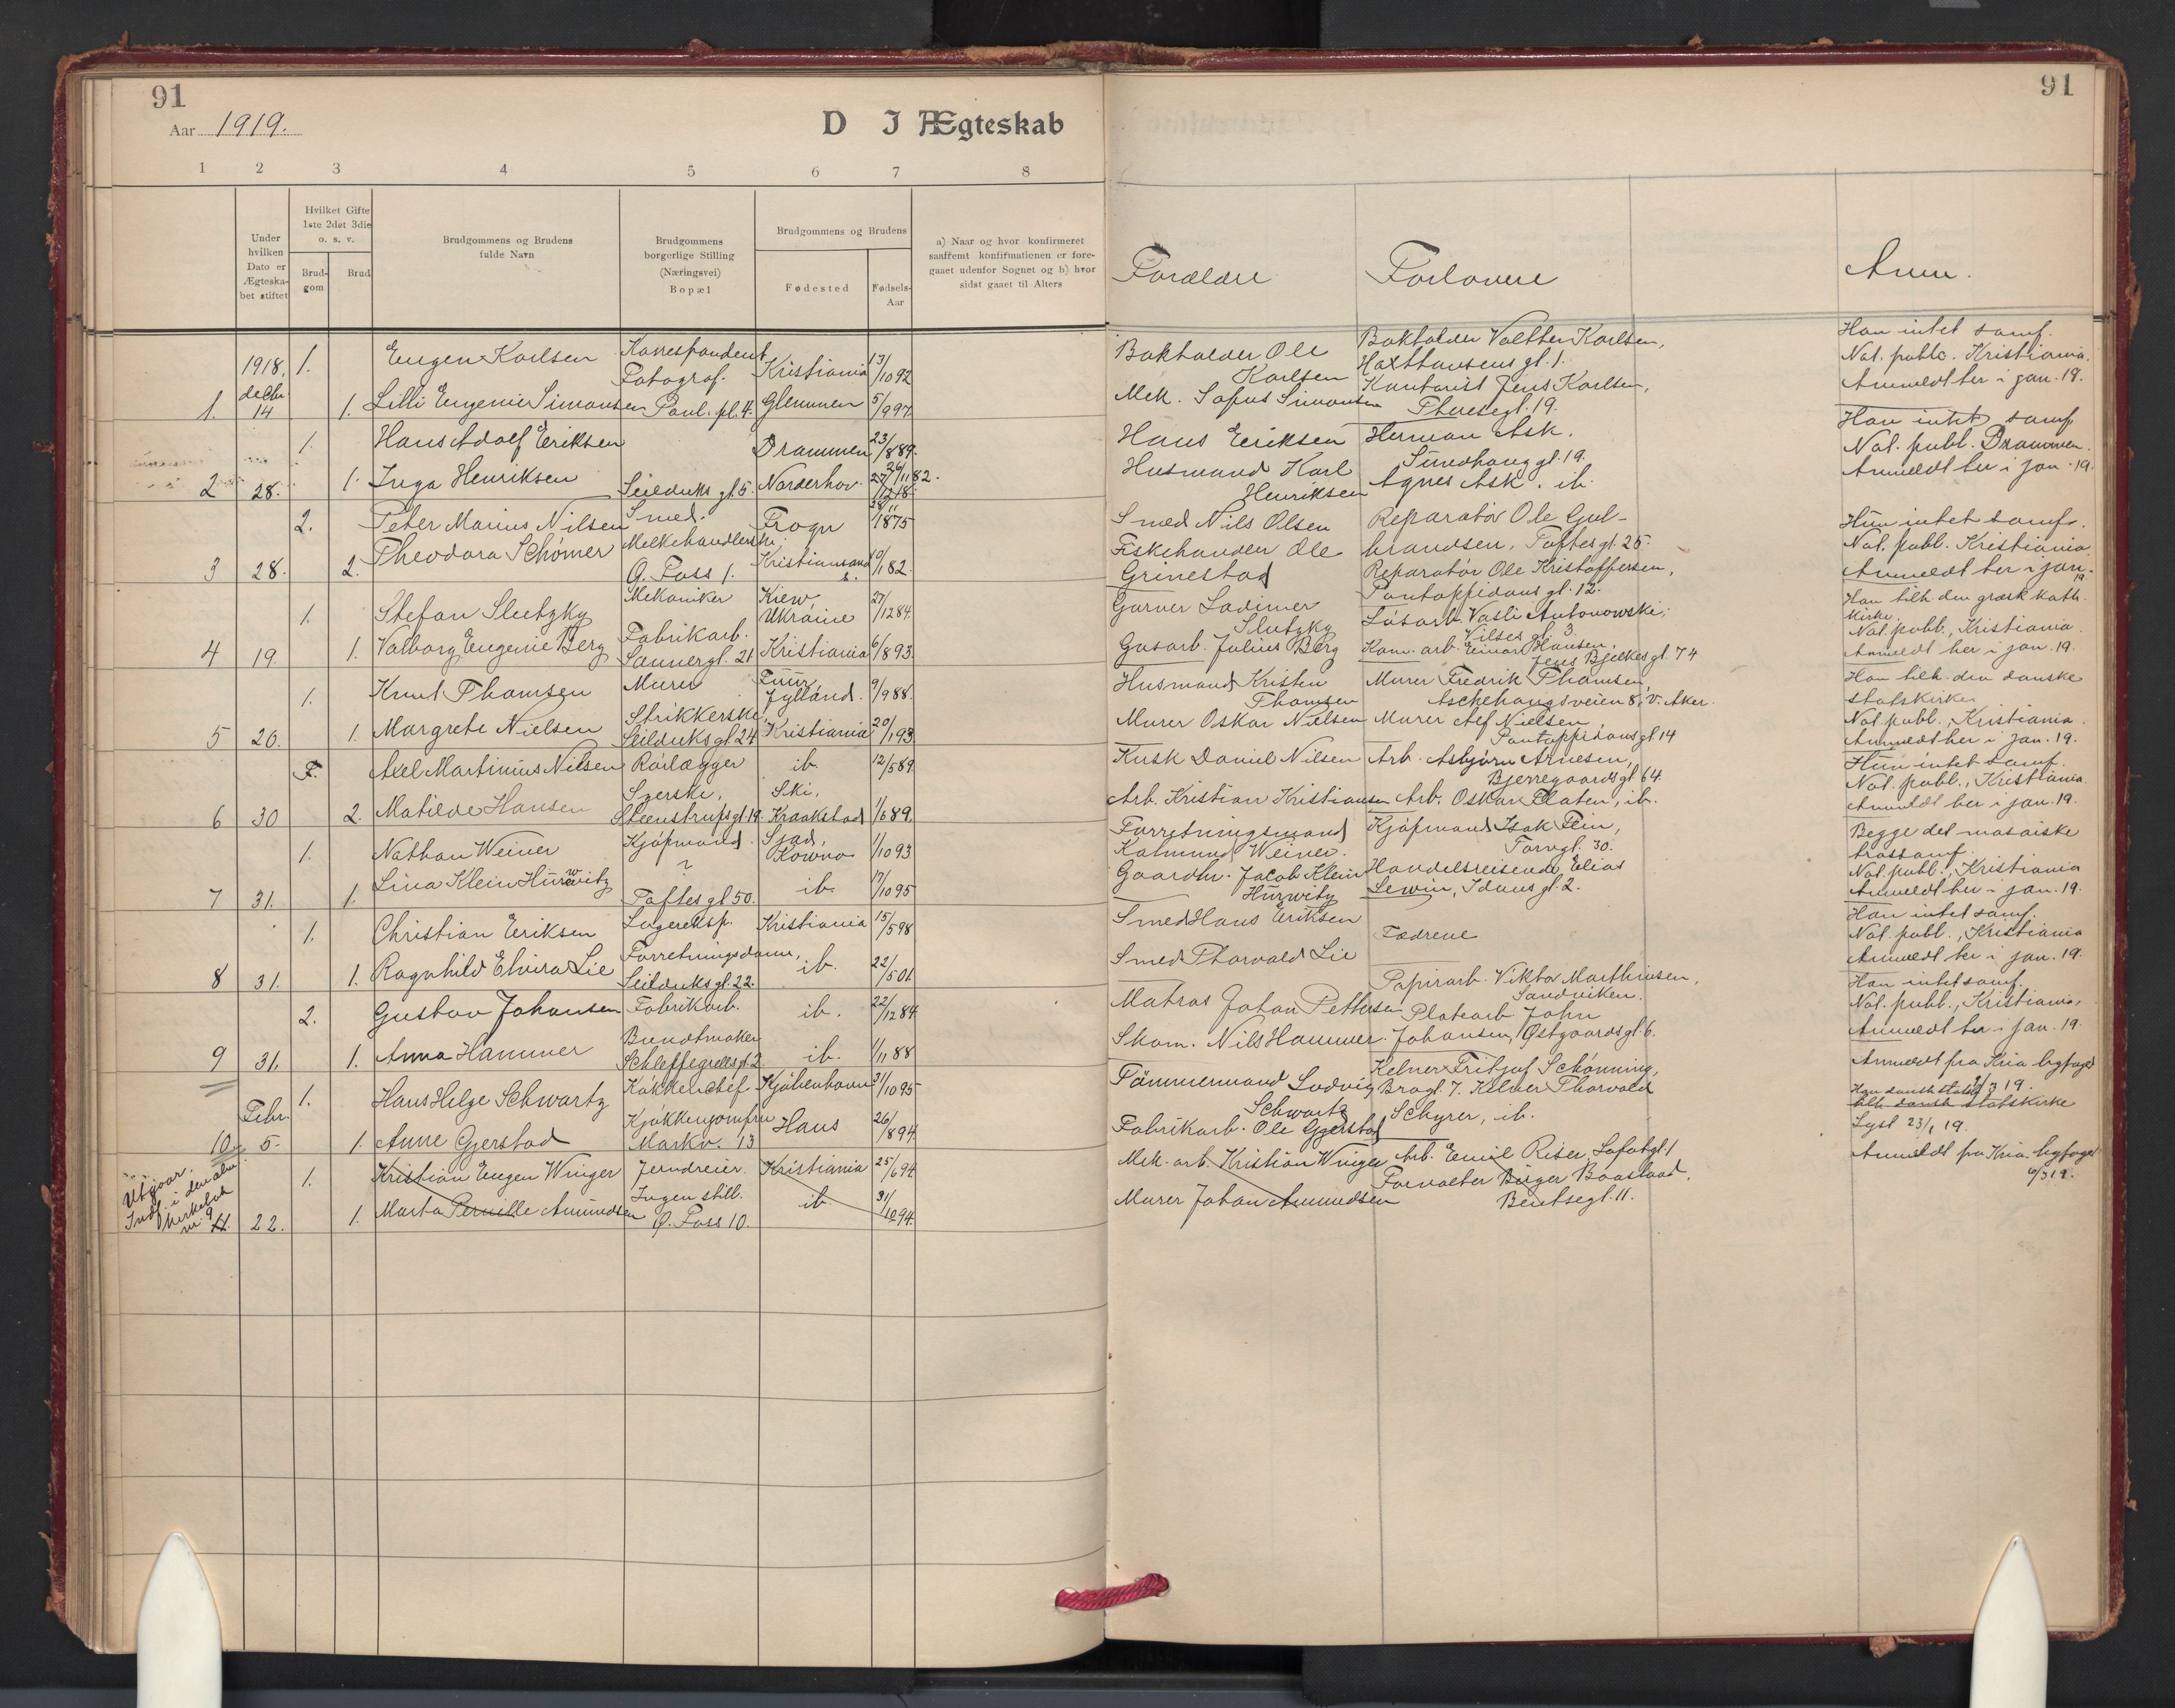 91
91
Aar 1919.
D I Ægteskab
1 2 3 4 5 6 7 8
Under hvilken Dato er Ægteska- bet stiftet
Hvilket Gifte 1ste 2det 3die o. s. v.
Brud- gom
Brud
Brudgommens og Brudens fulde Navn
Brudgommens borgerlige Stilling (Næringsvei) Bopæl
Brudgommens og Brudens
Fødested
Fødsels- Aar
a) Naar og hvor konfirmeret
saafremt konfirmationen er fore-
gaaet udenfor Sognet og b) hvor
sidst gaaet til Alters
Forældre
Forlovere
Anm.
1918, 1. Eugen Karlsen Korrespondent Kristiania 13/10 92 Bokholder Ole Karlsen Bokholder Valther Karlsen, Haxthausens gt. 1. Han intet samf.
Nat. publ. Kristiania.
1. decbr 14 1. Lilli Eugenie Simonsen Fotograf. Paul. pl. 4. Glemmen 5/9 97 Mek. Sofus Simonsen Kontorist Jens Karlsen, Theresegt. 19. Anmeldt her i jan. 19.
1. Hans Adolf Eriksen Drammen 23/8 89. Hans Eriksen Herman Ask. Smedhaug gt. 19. Han intet samf
Nat. publ. Drammen.
2 28. 1. Inga Henriksen Seilduks gt. 5. Norderhov. 26/11 82. Husmand Karl Henriksen Agnes Ask. ib. Anmeldt her i jan. 19.
2. Peter Marius Nilsen Smed. Frogn 1875 Smed Nils Olsen Reparatør Ole Gul-
brandsen, Toftes gt. 25. Hun intet samf.
Nat. publ. Kristiania
3 28. 2. Theodora Schømer Melkehandlerske. O. Foss 1. Kristiansand s. 10/1 82. Fiskehandler Ole Grinestad Reparatør Ole Kristoffersen, Pontoppidans gt. 12. Anmeldt her i jan. 19
1. Stefan Slutzky Mekaniker Kiew, Ukraine 27/12 84. Garver Ladimer Slutzky Løsarb. Vasli Antonowski, Vilses gt. 3. Han tilh. den græsk kath. kirke.
Nat. publ., Kristiania
4 19. 1. Valborg Eugenie Berg Fabrikarb. Sannergt. 21 Kristiania 6/8 93. Gasarb. Julius Berg Kom. arb. Einar Hansen, Jens Bjelkes gt. 74 Anmeldt her i jan. 19.
1. Knut Thomsen Murer Fuur, Jylland. 9/9 88. Husmand Kristen Thomsen Murer Fredrik Thomsen, Aschehougsveien 8, V. Aker. Han tilh. den danske statskirke
Nat. publ., Kristiania.
5 20. 1. Margrete Nielsen Strikkerske, Seilduks gt. 24 Kristiania 20/1 93 Murer Oskar Nielsen Murer Alf Nielsen, Pontoppidans gt 14 Anmeldt her i jan. 19.
F. Axel Martinius Nilsen Rørlægger ib. 12/5 89. Kusk Daniel Nilsen Arb. Asbjørn Arnesen, Bjerregaards gt 64. Hun intet samf.
Nat. publ., Kristiania
6 30 2. Matilde Hansen Syerske, Steenstrups gt. 19. Ski, Kraakstad 1/6 89. Arb. Kristian Kristiansen Arb. Oskar Platen, ib. Anmeldt her i jan. 19.
1. Nathan Weiner Kjøpmand. Sjad, Kowno 1/10 93 Forretningsmand Kalmund Weiner. Kjøpmand Isak Fein, Torvgt. 30. Begge det mosaiske trossamf.
Nat. publ., Kristiania
7 31. 1. Lina Klein Hurwitz ? Toftes gt 50. ib. 17/10 95 Gaardbr. Jacob Klein Hurwitz Handelsreisende Elias Lewin, Idans gt. 2. Anmeldt her i jan. 19.
1. Christian Eriksen Lagereksp. Kristiania 15/5 98 Smed Hans Eriksen Fædrene Han intet samf.
Nat. publ., Kristiania
8 31. 1. Ragnhild Elvira Lie Forretningsdame, Seilduks gt. 22. ib. 22/5 01. Smed Thorvald Lie Anmeldt her i jan. 19.
2. Gustav Johansen Fabrikarb. ib. 22/12 84 Matros Johan Pettersen Papirarb. Viktor Marthinsen, Sandviken. Han intet samf.
Nat. publ., Kristiania,
9 31. 1. Anna Hammer Bundtmaker Schleppegrells gt. 2 ib. 1/11 88 Skom. Nils Hammer. Platearb John Johansen, Østgaards gt. 6. Anmeldt her i jan. 19.
1. Hans Helge Schwartz Køkkenchef Kjøbenhavn 31/10 95 Tømmermand Ludvig Schwartz Kelner Fritjof Schønning, Brogt. 7. Kelner Thorvald Schyrer, ib. Anmeldt fra Kria byfoged
3 19.
tilh. dansk statskirke
Lyst 23/1 19.
10. Febr. 5. 1. Anne Gjerstad Kjøkkenjomfru Markv. 13 Haus 26/8 94. Fabrikarb. Ole Gjerstad
1. Kristian Eugen Winger Jerndreier. Kristiania 25/6 94 Mek. arb. Kristian Winger Arb. Emil Riser, Lofotgt 1 Anmeldt fra Kria. byfoged
6/3 19.
Utgaar.
Indf. i den alm.
Kirkebok
nr. 9
11. 22. 1. Marta Pernille Amundsen Ingen still. O. Foss 10. ib. 31/10 94. Murer Johan Amundsen Forvalter Birger Baastad, Bentsegt. 11.